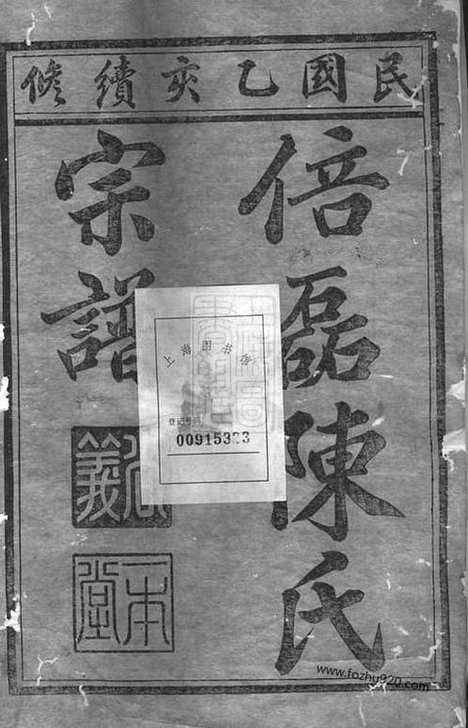 民國乙亥續修
倍磊陳氏
宗譜
一本堂
上海图书馆
登记号码
00915333
www.fozhu920.com